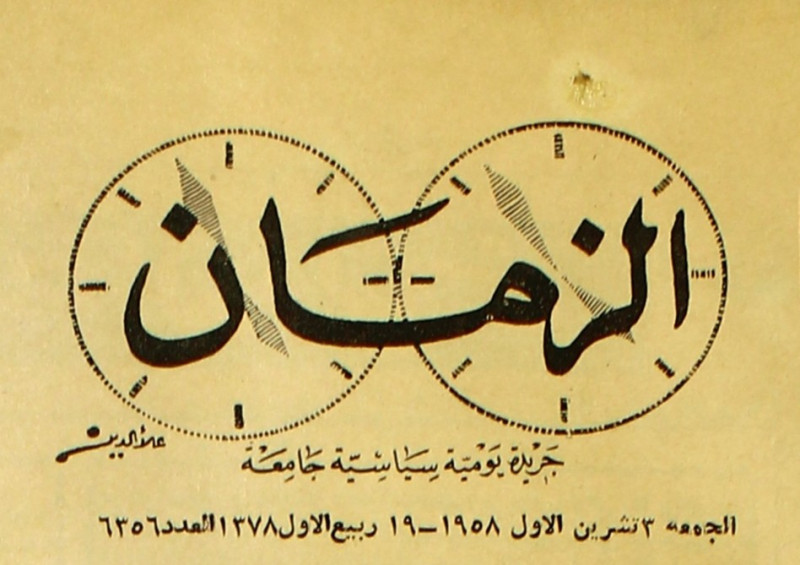 الزمان
علاءالدين
جَريْدة يَوْميّة سِيَاسِيّة جَامِعَة
الجمعه ٣ تشرين الاول ١٩٥٨ – ١٩ ربيع الاول ١٣٧٨ العدد ٦٣٥٦